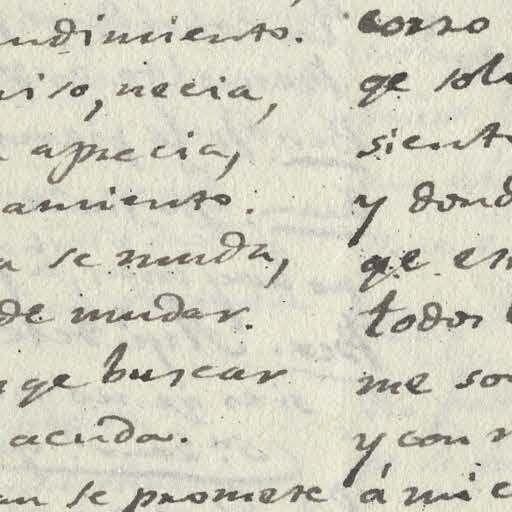 ndimiento.
iso, necia,
aprecia,
amiento.
a se muda,
de mudar.
qe buscar
acuda.
an se promete
corro
qe sol
siento
y dond
qe en
todos
me so
y con
á mi